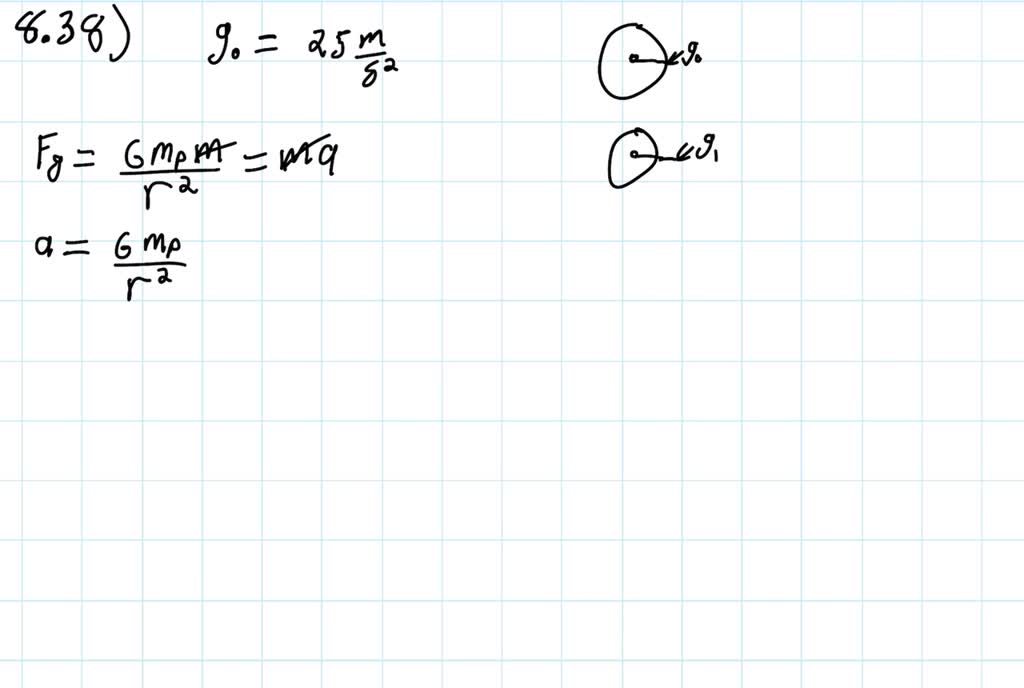 8.38) g₀ = 25 m/s²
g₀
F_g = G m_p m / r² = m a
g₁
a = G m_p / r²